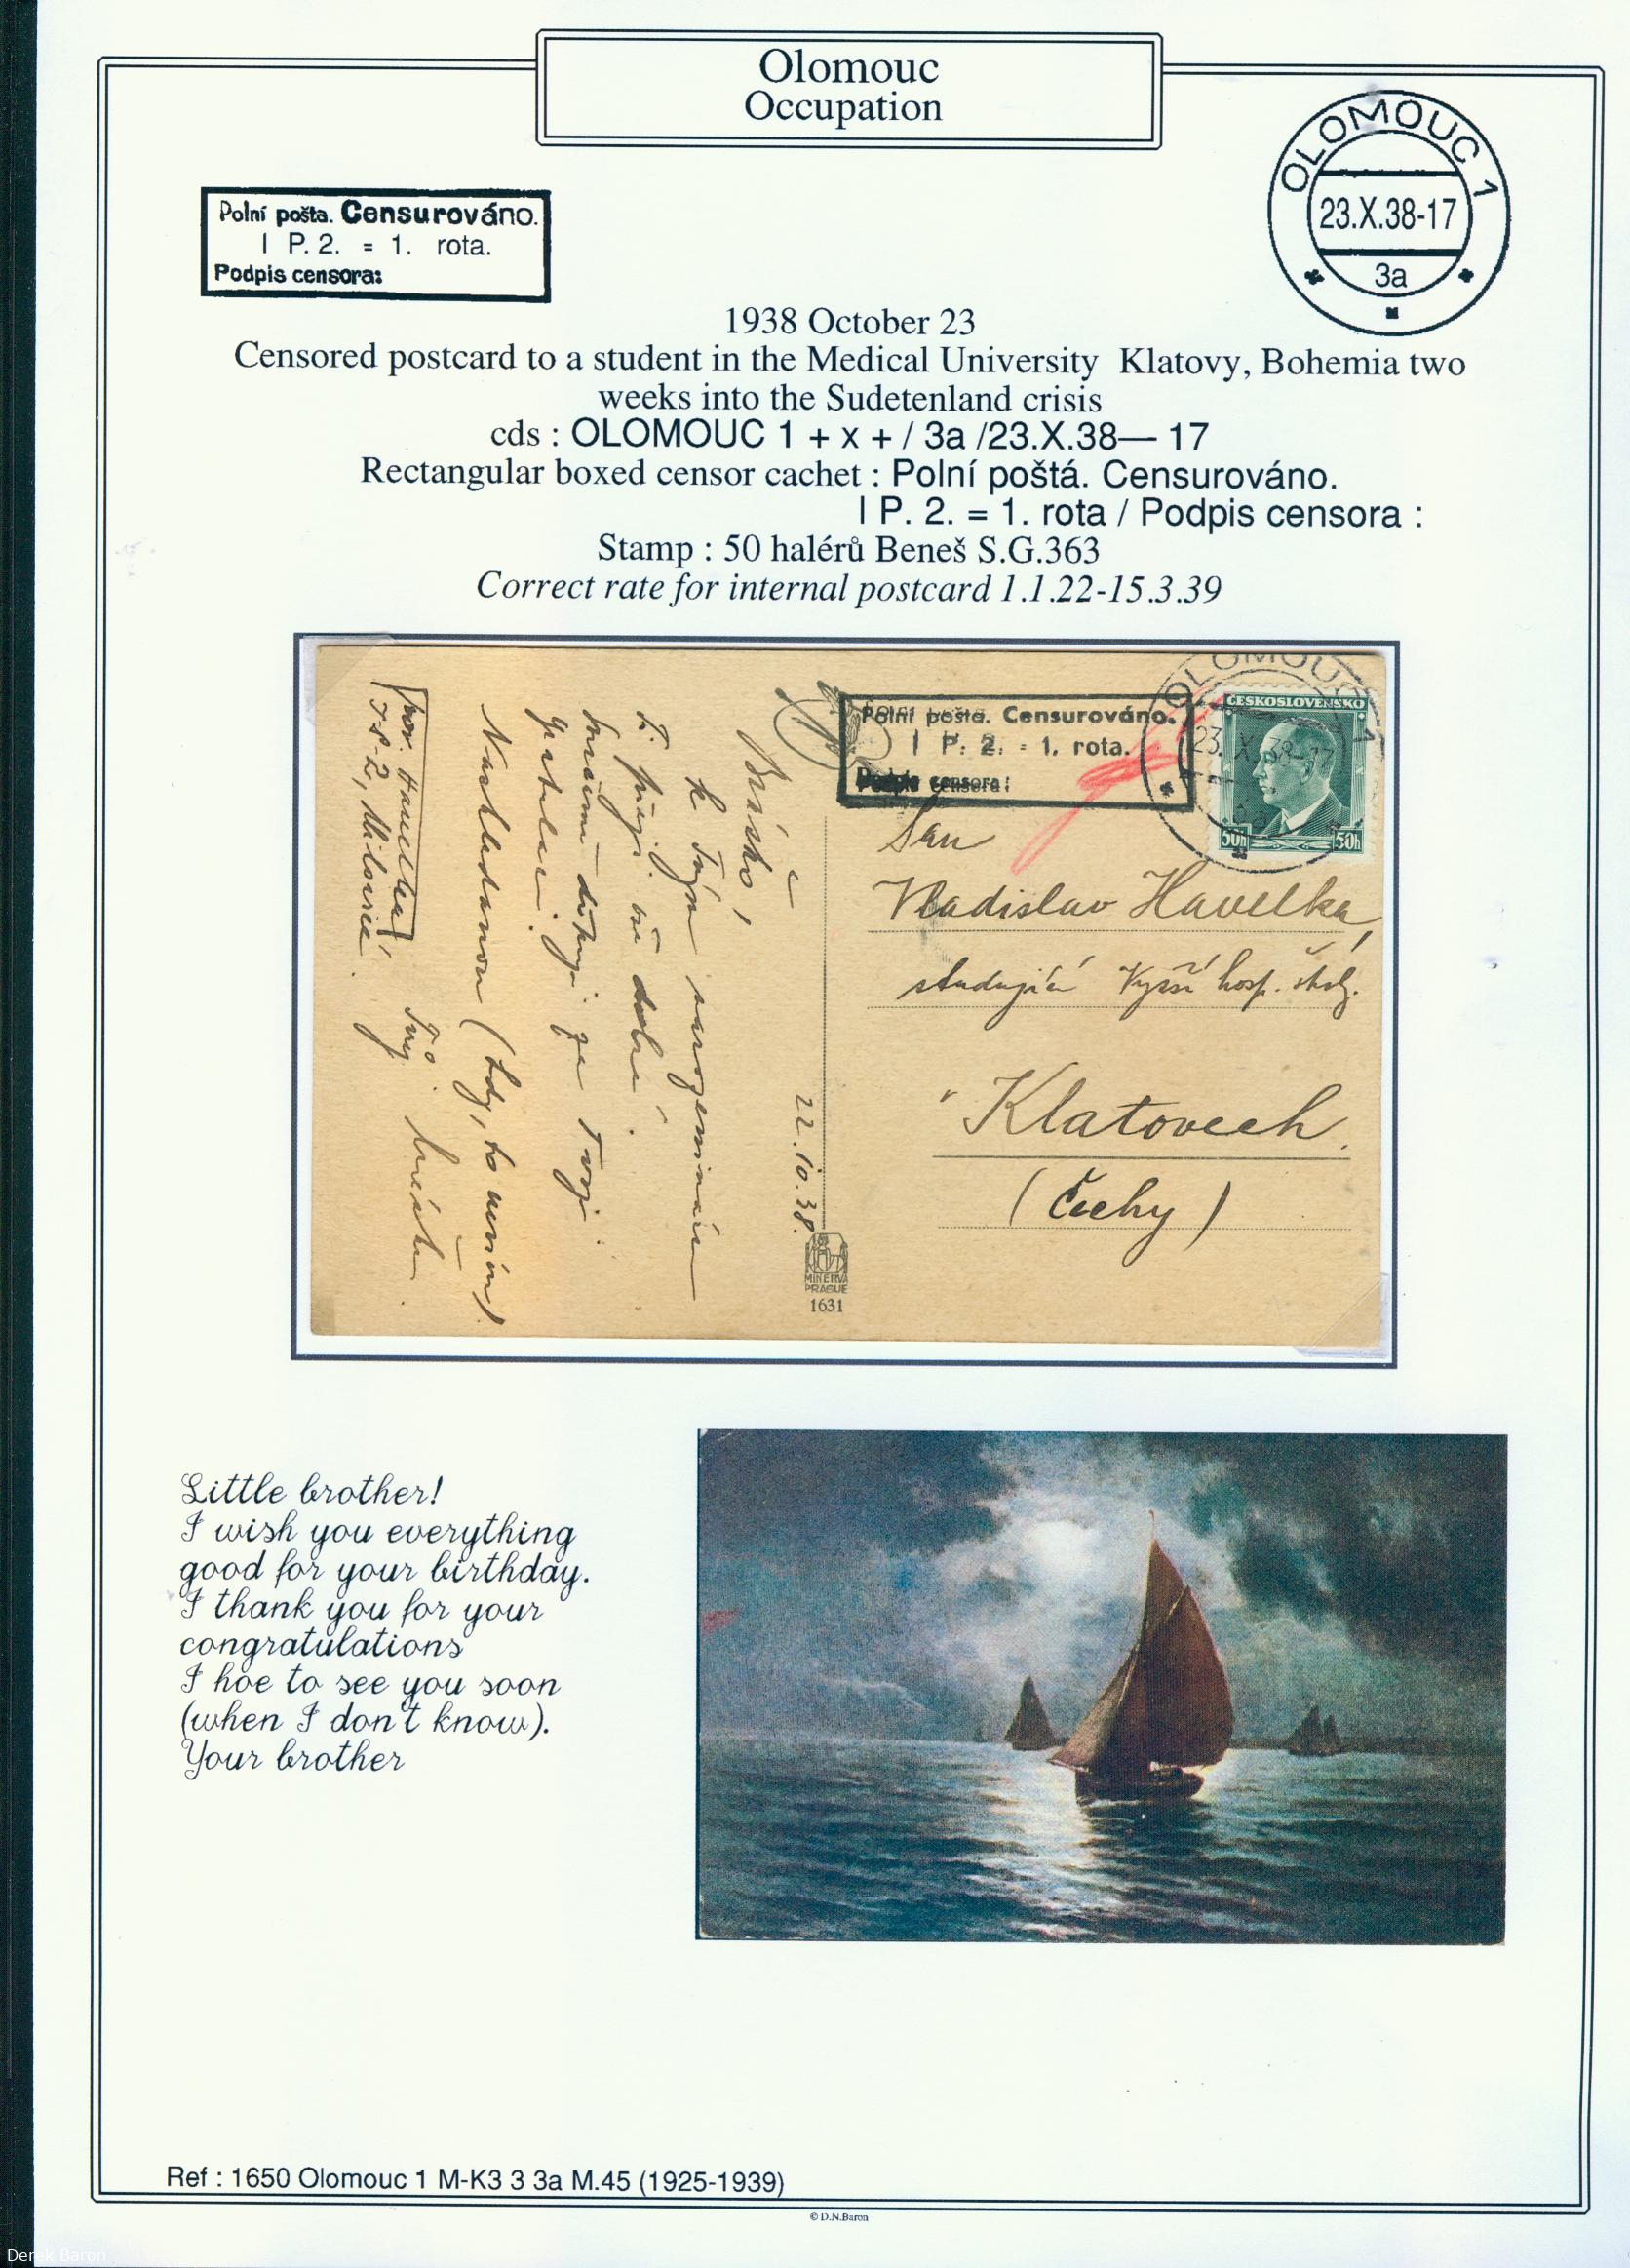 Olomouc
Occupation
OLOMOUC 1
23.X.38-17
3a
Polní pošta. Censurováno.
I P. 2. = 1. rota.
Podpis censora:
1938 October 23
Censored postcard to a student in the Medical University Klatovy, Bohemia two
weeks into the Sudetenland crisis
cds : OLOMOUC 1 + x + / 3a /23.X.38— 17
Rectangular boxed censor cachet : Polní poštá. Censurováno.
I P. 2. = 1. rota / Podpis censora :
Stamp : 50 halérů Beneš S.G.363
Correct rate for internal postcard 1.1.22-15.3.39
Polní pošta. Censurováno.
I P. 2. = 1. rota.
Podpis censora:
OLOMOUC 1
23.X.38-17
ČESKOSLOVENSKO
50h 50h
Pan
Vladislav Havelka,
studující Vyšší hosp. školy.
v Klatovech.
(Čechy)
22.10.38.
Brácho!
k Tvým narozeninám
Ti přeji vše dobré.
děkuji za Tvoji
gratulaci.
Nashledanou (kdy, to nevím)
Tvůj
Havelka
MINERVA
PRAGUE
1631
Little brother!
I wish you everything
good for your birthday.
I thank you for your
congratulations
I hoe to see you soon
(when I don't know).
Your brother
Ref : 1650 Olomouc 1 M-K3 3 3a M.45 (1925-1939)
© D.N.Baron
Derek Baron